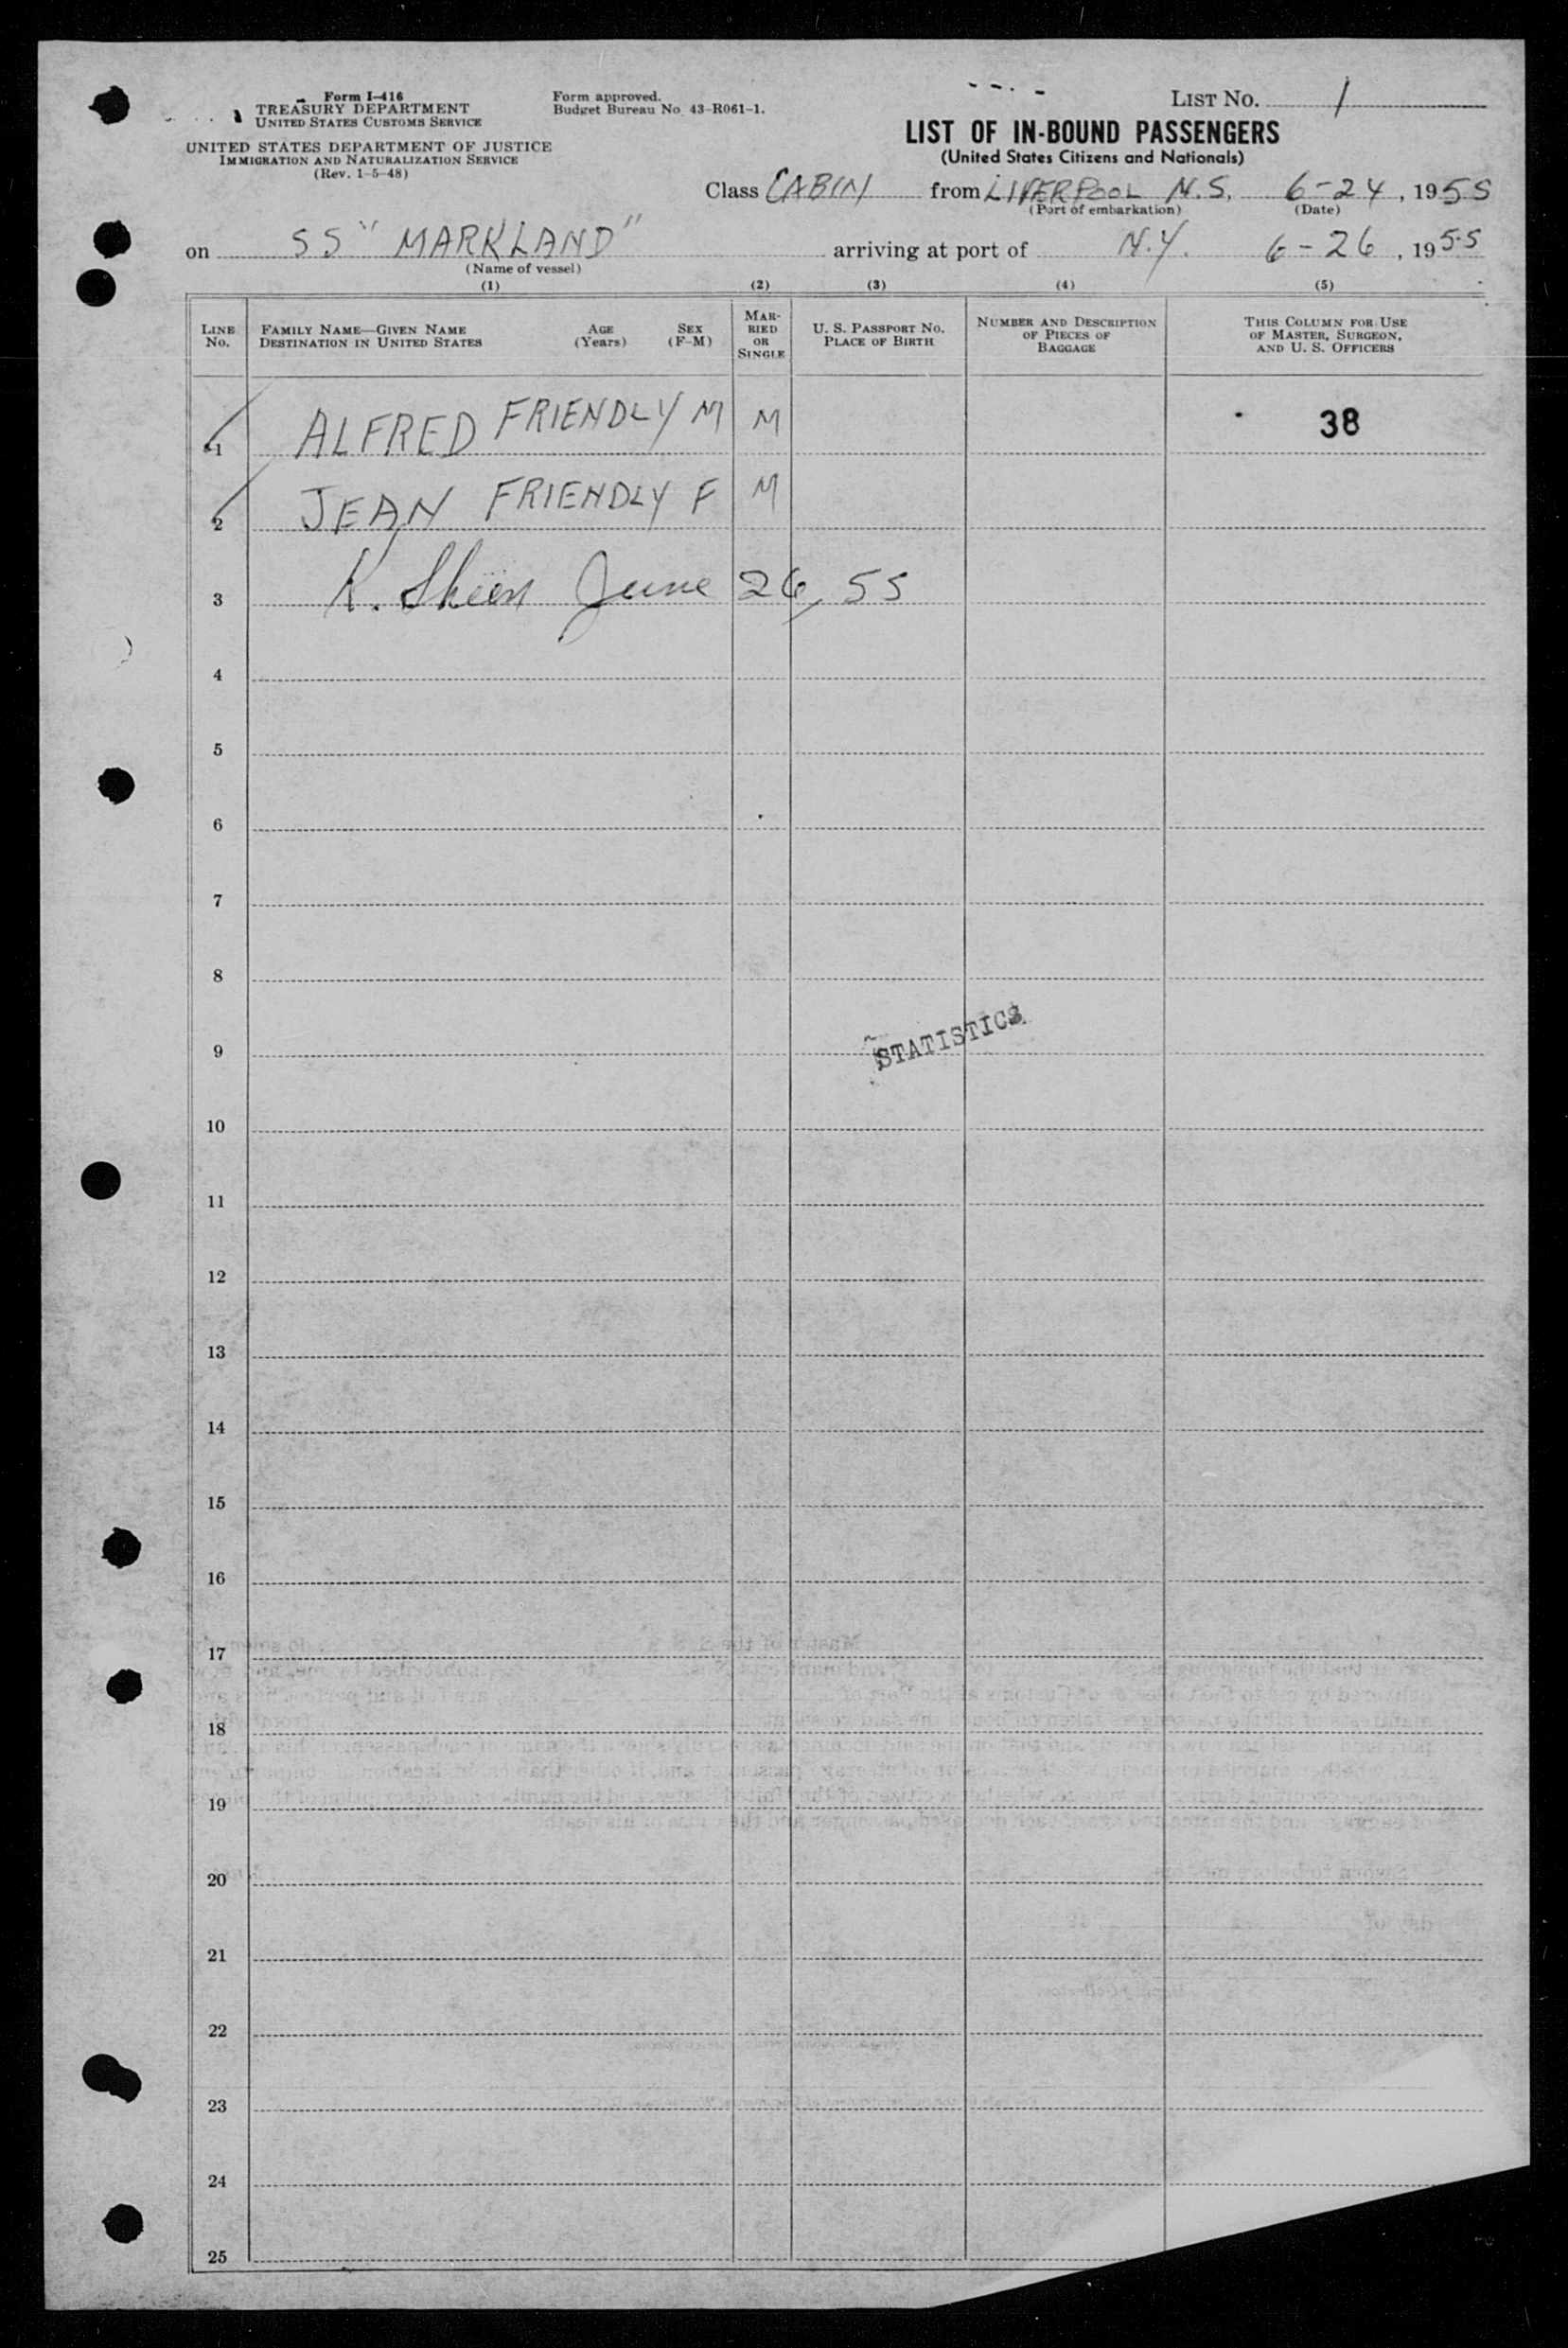 Form I-416
TREASURY DEPARTMENT
UNITED STATES CUSTOMS SERVICE
UNITED STATES DEPARTMENT OF JUSTICE
IMMIGRATION AND NATURALIZATION SERVICE
(Rev. 1-5-48)
Form approved.
Budget Bureau No. 43-R061-1.
LIST NO. 1
LIST OF IN-BOUND PASSENGERS
(United States Citizens and Nationals)
Class CABIN from LIVERPOOL N.S. 6-24, 1955
(Port of embarkation) (Date)
on SS "MARKLAND" arriving at port of N.Y. 6-26, 1955
(Name of vessel)
(1) (2) (3) (4) (5)
LINE NO.
FAMILY NAME—GIVEN NAME
DESTINATION IN UNITED STATES
AGE (Years)
SEX (F-M)
MARRIED OR SINGLE
U. S. PASSPORT NO.
PLACE OF BIRTH
NUMBER AND DESCRIPTION
OF PIECES OF
BAGGAGE
THIS COLUMN FOR USE
OF MASTER, SURGEON,
AND U. S. OFFICERS
1 ALFRED FRIENDLY M M 38
2 JEAN FRIENDLY F M
3 K. June 26, 55
4
5
6
7
8
9
STATISTICS
10
11
12
13
14
15
16
17
18
19
20
21
22
23
24
25